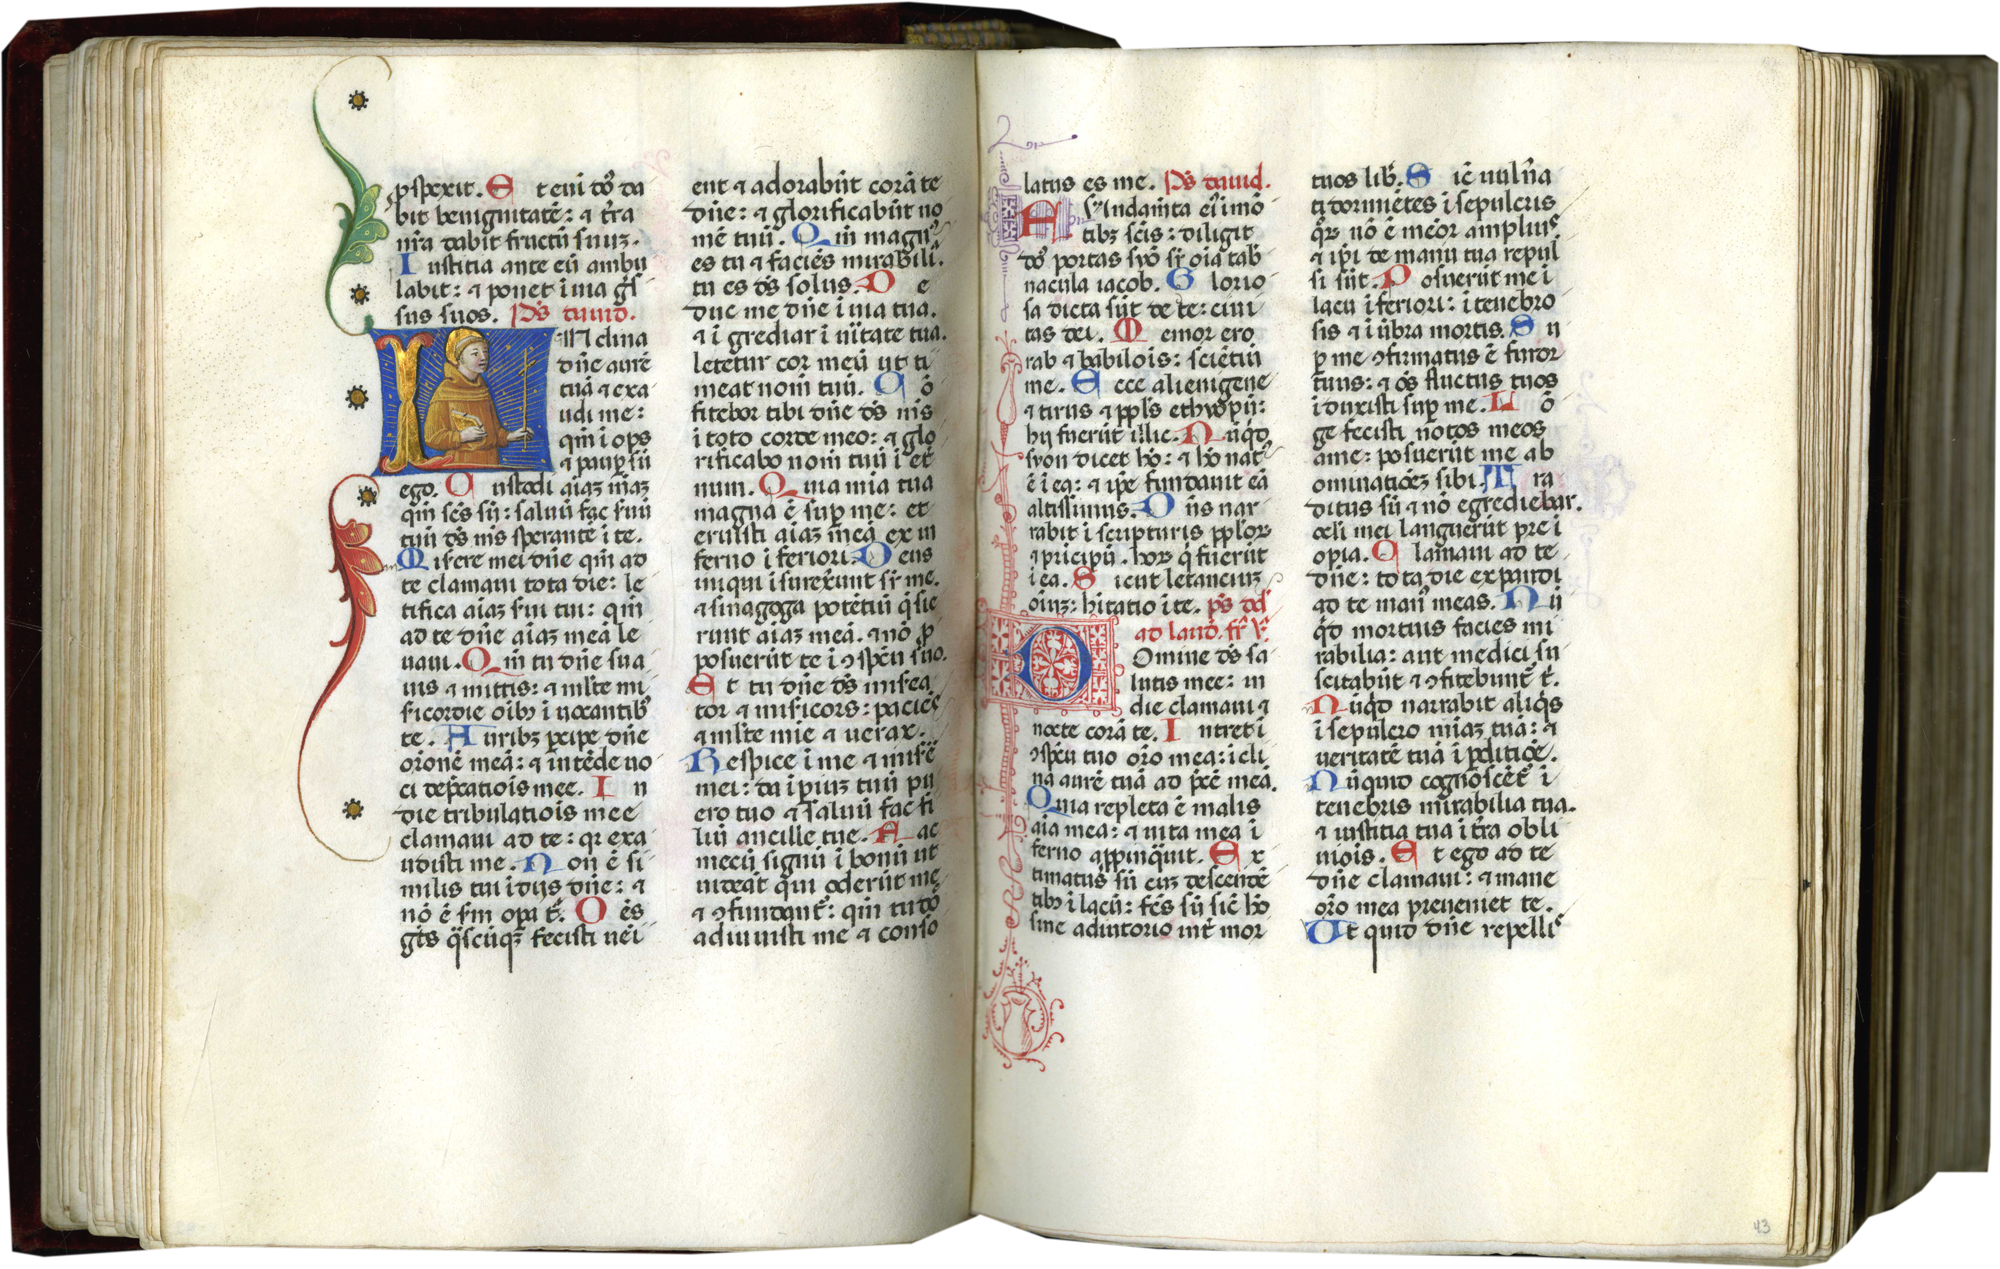 pspexit. Et eni dn̄s da
bit benignitatē: ⁊ t̄ra
nr̄a dabit fructū suuȝ.
Iustitia ante eū ambu
labit: ⁊ ponet ī uia gs̄
sus suos. Ps̄ dauid.
Inclina
dn̄e aurē
tuā ⁊ exa
udi me:
qm̄ īops
⁊ paup sū
ego. Custodi aīaȝ meaȝ
qm̄ scs̄ sū: saluū fac suū
tuū ds̄ ms̄ sperantē ī te.
Miserē mei dn̄e qm̄ ad
te clamaui tota die: le
tifica aīaȝ sui tui: qm̄
ad te dn̄e aīaȝ meā le
uaui. Qm̄ tu dn̄e sua
uis ⁊ mittis: ⁊ mlte mi
sicordie oībȝ īuocantibȝ
te. Auribȝ pcipe dn̄e
orōnē meā: ⁊ intēde uo
ci dep̄catiōis mee. In
die tribulatiōis mee
clamaui ad te: qr exa
udisti me. Non ē si
milis tui ī dijs dn̄e: ⁊
nō ē sm̄ opa t̄. Oēs
gēs qscūqȝ fecisti uēi
ent ⁊ adorabūt corā te
dn̄e: ⁊ glorificabūt no
mē tuū. Qm̄ magnꝰ
es tu ⁊ faciēs mirabili.
tu es ds̄ solus. De
duc me dn̄e ī uia tua.
⁊ īgrediar ī uītate tua.
letetur cor meū ut ti
meat nom̄ tuū. Cō
fitebor tibi dn̄e ds̄ ms̄
ī toto corde meo: ⁊ glo
rificabo nom̄ tuū ī et̄
num. Quia mīa tua
magna ē sup me: et
eruisti aīaȝ meā ex in
ferno īferiori. Deus
iniqui īsurexunt sr̄ me.
⁊ sinagoga potētiū qsie
runt aīaȝ meā. ⁊ nō p
posuerūt te ī ↄspēu suo.
Et tu dn̄e ds̄ misea
tor ⁊ misicors: paciēs
⁊ mlte mīe ⁊ uerax.
Respice ī me ⁊ misē
mei: da īpiuȝ tuū pu
ero tuo ⁊ saluū fac fi
liū ancille tue. Fac
mecū signū ī bonū ut
uideāt qui oderūt me
⁊ ↄfundant̄: qm̄ tu dn̄e
adiuuisti me ⁊ conso
latus es me. Ps̄ dauid.
Fūndam̄ta ei ī mō
tibȝ scīs: diligit
dn̄s portas syō sr̄ oīa tab̄
nacula iacob. Glorio
sa dicta sūt de te: ciui
tas dei. Memor ero
rab ⁊ babilōis: scīetiū
me. Ecce alienigene
⁊ tirus ⁊ ppls ethyopū:
hij fuerūt illic. Nūqd
syon dicet hō: ⁊ hō natꝰ
ē ī ea: ⁊ ipē fundauit eā
altissimus. Dn̄s nar
rabit ī scripturis pplor
⁊ pricipū. hor q fuerūt
ī ea. Sicut letanciuȝ
oīuȝ: hītatio ī te. ps̄ dd
ad laud.
Domine ds̄ sa
lutis mee: in
die clamaui ⁊
nocte corā te. Intret ī
ↄspēu tuo orō mea: īcli
na aurē tuā ad pcē meā.
Quia repleta ē malis
aīa mea: ⁊ uita mea ī
ferno appinqūit. Ex
timatus sū cuȝ descendē
tibȝ ī lacū: fēs sū sic̄ hō
sine adiutorio int̄ mor
tuos lib̄. Sic̄ uuln̄a
ti dormiētes ī sepulcris
qr nō ē meor ampliꝰ
⁊ ipi de manu tua repul
si sūt. Posuerūt me ī
lacu īferiori: ī tenebro
sis ⁊ ī ūbra mortis. Su
p me ↄfirmatus ē furor
tuus: ⁊ oēs fluctus tuos
īduxisti sup me. Lō
ge fecisti notos meos
a me: posuerūt me ab
ominatiōeȝ sibi. Tra
ditus sū ⁊ nō egrediebar.
ocli mei languerūt pre ī
opia. Clamaui ad te
dn̄e: tota die expandi
ad te manꝰ meas. Nū
qd mortuis facies mi
rabilia: aut medici su
scitabūt ⁊ ↄfitebunt̄ t̄.
Nūqd narrabit aliqs
ī sepulcro mīaȝ tuā: ⁊
ueritatē tuā ī pditiōe.
Nūquid cognoscēt̄ ī
tenebris mirabilia tua.
⁊ iustitia tua ī t̄ra obli
uiōis. Et ego ad te
dn̄e clamaui: ⁊ mane
orō mea preueniet te.
Ut quid dn̄e repellis
43